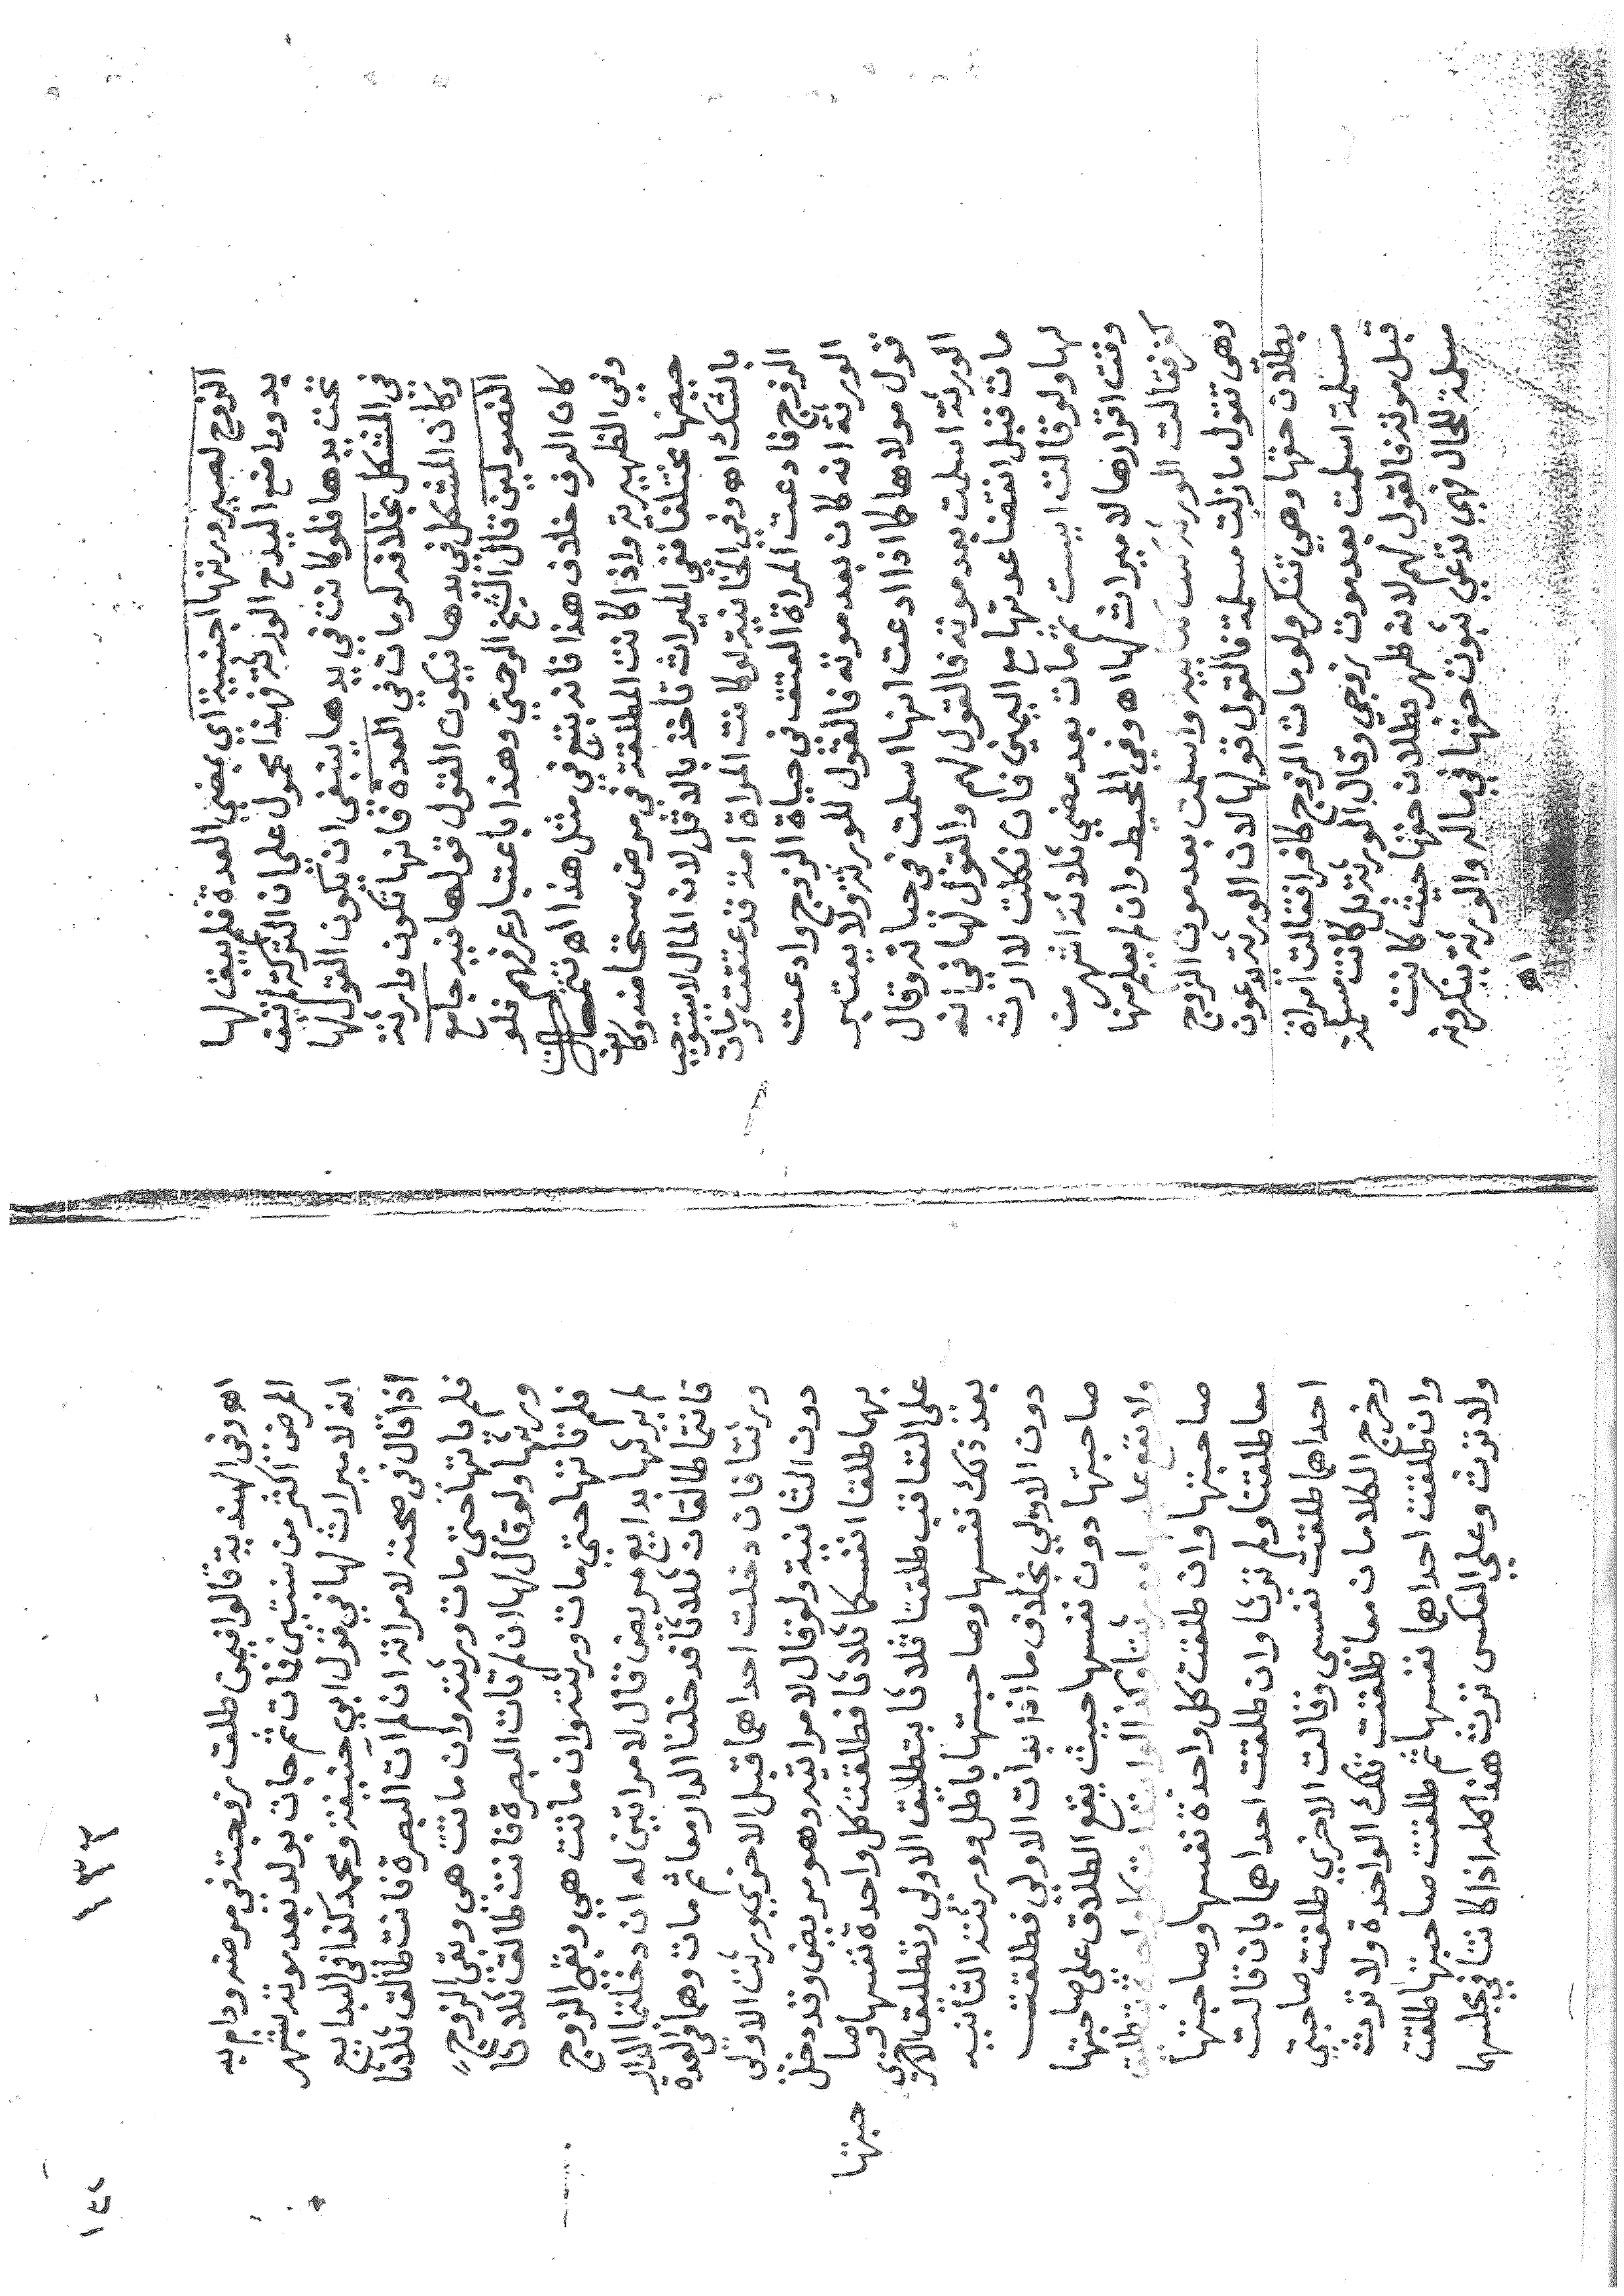 الزوج لصيرورتها اجنبية اي بمضي العدة فلم يبق لها
يد وما مع اليد ح الورثة فهذا محمول على ان التركة لم تبق
تحت يدها فلو كانت في يدها ينبغي ان يكون القول لها
في المشكل بخلافه لو مات في العدة فانها تكون وارثة
وكان المشكل في يدها فيكون القول قولها فيه جامع
الفصولين قال الشيخ الرحمتي وهذا باعتبار عرفهم فلو
كان العرف خلاف هذا فانه يتبع في مثل هذا اه
وفي الظهيرية واذا كانت المطلقة في مرض مستحاضة وكان
حيضها مختلفا ففي الميراث تأخذ بالاقل لان المال لا يستوجب
بالشك اه وفي الخانية لو كانت المراة امة قد عتقت ومات
الزوج فادعت المراة العتق في حياة الزوج وادعت
الورثة انه كان بعد موته فالقول للورثة ولا يعتبر
قول مولاها كما اذا ادعت انها اسلمت في حياته وقال
الورثة اسلمت بعد موته فالقول لهم والقول لها في انه
مات قبل انقضا عدتها مع اليمين فان نكلت لا ارث
لها ولو قالت ايست ثم مات بعد مضي ثلاثة اشهر من
وقت اقرارها لا ميراث لها اه وفي المحيط وان لم يعلم منها
كفر فقالت الورثة كنت كتابية واسلمت بعد موت الزوج
وهي تقول ما زلت مسلمة فالقول قولها لان الورثة يدعون
بطلان حقها وهي تنكر ولو مات الزوج كافرا فقالت امراة
مسلمة اسلمت بعد موت زوجي وقال الورثة بل كانت مسلمة
قبل موته فالقول لهم لانه ظهر بطلان حقها حيث كانت
مسلمة للحال فهي تدعي ثبوت حقها في ماله والورثة ينكرونه
اه
١٣٣
١٤٢
اه وفي الهندية قالوا فيمن طلق زوجته في مرضه ودام به
المرض اكثر من سنتين فمات ثم جات بولد بعد موته بشهر
انه لا ميراث لها في قول ابي حنيفة ومحمد كذا في البدايع
اذا قال في صحته لامراته ان لم ات البصرة فانت طالق ثلاثا
فلم ياتها حتى مات ورثته وان ماتت هي وبقي الزوج
ورثها ولو قال لها ان لم تات البصرة فانت طالق ثلاثا
فلم تاتها حتى مات ورثته وان ماتت هي وبقي الزوج
لم يرثها بدايع مريض قال لامراتين له ان دخلتما الدار
فانتما طالقات ثلاثا فدخلتا الدار معا ثم مات وهما في العدة
ورثتا فان دخلت احداهما قبل الاخرى ورثت الاولى
دون الثانية ولو قال لامراتيه وهو مريض وقد دخل
بهما طلقا انفسكما ثلاثا فطلقت كل واحدة نفسها وصا
حبتها
على التعاقب طلقتا ثلاثا بتطليق الاولى وتطليق الاخرى
بعد ذلك نفسها وصاحبتها باطل وورثت الثانية
دون الاولى بخلاف ما اذا بدأت الاولى فطلقت
صاحبتها دون نفسها حيث يقع الطلاق على صاحبتها
ولا يقع عليها
صاحبتها وان طلقت كل واحدة نفسها وصاحبتها
معا طلقتا ولم ترثا وان طلقت احداهما بان قالت
احداهما طلقت نفسي وقالت الاخرى طلقت صاحبتي
وخرج الكلامان معا طلقت تلك الواحدة ولا ترث
وان طلقت احداهما نفسها ثم طلقت صاحبتها طلقت
ولا ترث وعلى العكس ترث هذا كله اذا كانتا في مجلسهما